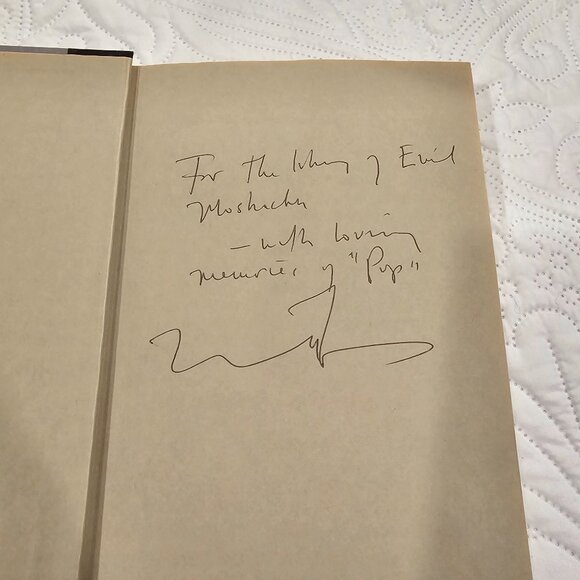 For the library of Emil
- with loving
memories of "Pop"